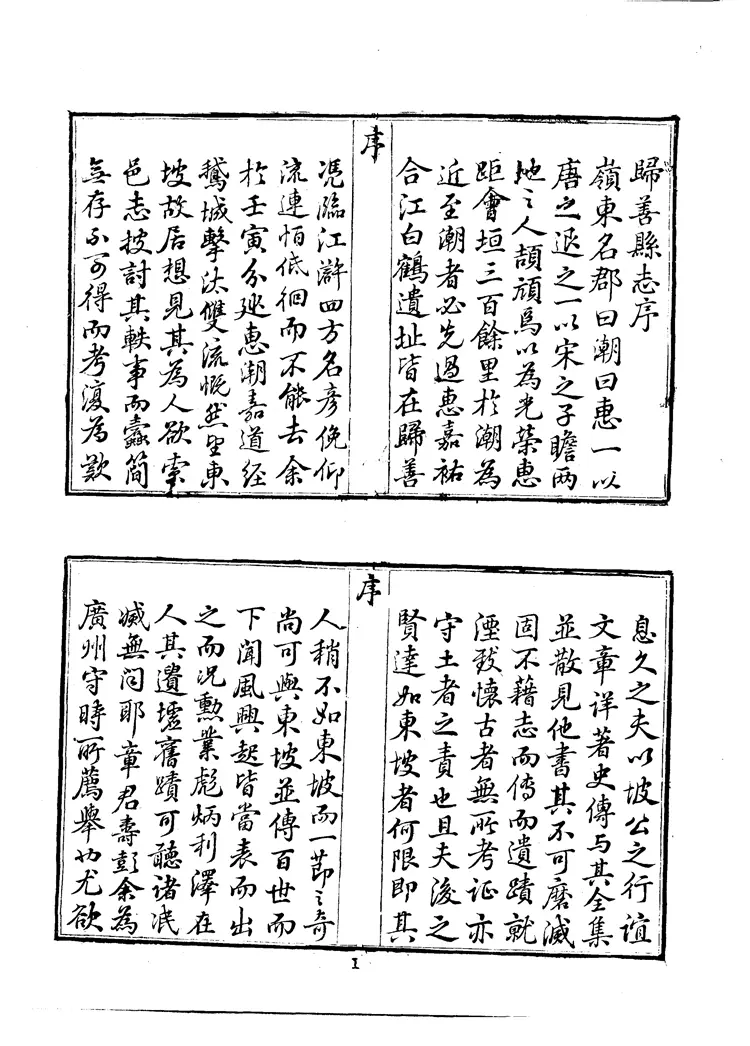 歸善縣志序
嶺東名郡曰潮曰惠一以
唐之退之一以宋之子瞻两
地之人頡頏焉以為光榮惠
距會垣三百餘里於潮為
近至潮者必先過惠嘉祐
合江白鶴遺址皆在歸善
序
憑臨江滸四方名彥俛仰
流連怕低徊而不能去余
於壬寅分巡惠潮嘉道經
鵝城擊汰雙流慨然望東
坡故居想見其為人欲索
邑志披討其軼事而蠹簡
無存不可得而考渡為歎
息久之夫以坡公之行誼
文章詳著史傳与其全集
並散見他書其不可磨滅
固不藉志而傳而遺蹟就
湮致懷古者無所考証亦
守土者之責也且夫後之
賢達如東坡者何限即其
序
人稍不如東坡而一節之奇
尚可與東坡並傳百世而
下聞風興起皆當表而出
之而況勳業彪炳利澤在
人其遺墟舊蹟可聽諸泯
滅無问耶章君壽彭余為
廣州守時所薦舉也尤欲
1